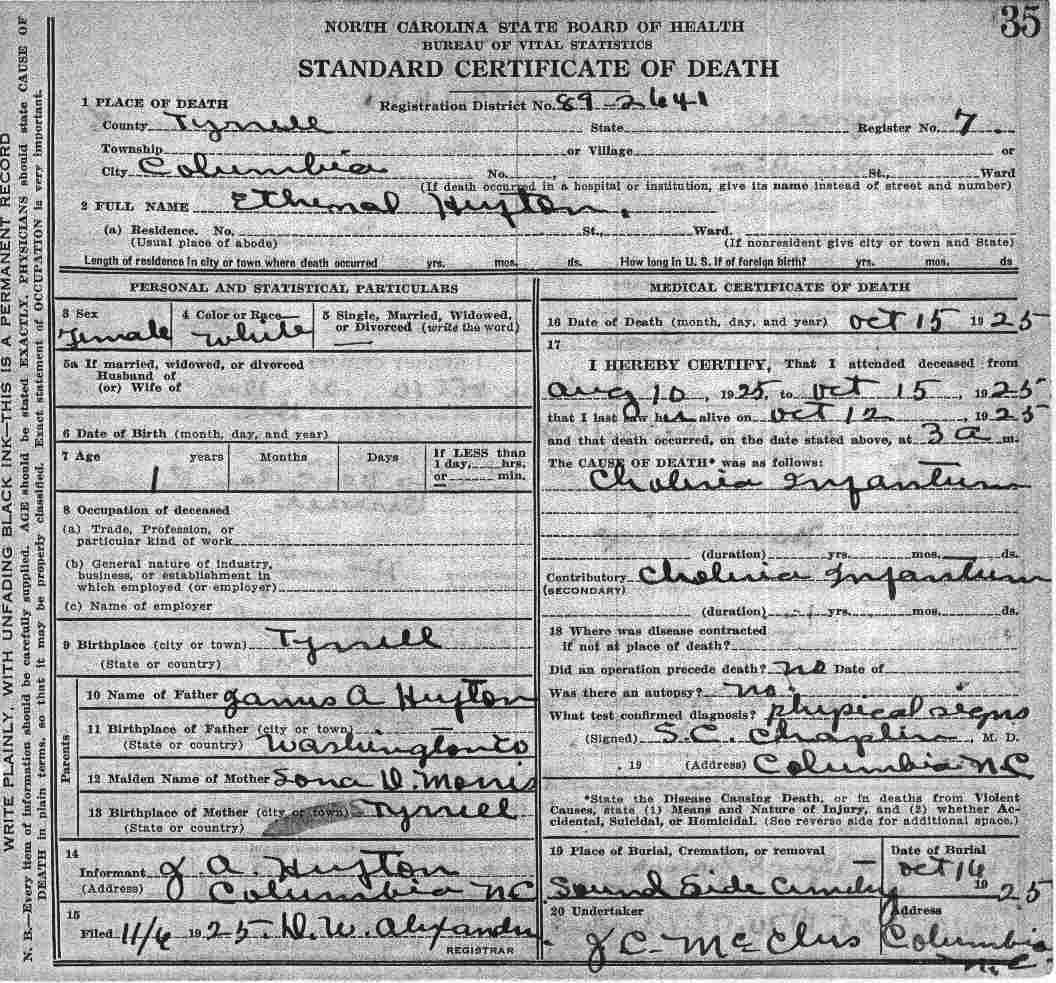 35
NORTH CAROLINA STATE BOARD OF HEALTH
BUREAU OF VITAL STATISTICS
STANDARD CERTIFICATE OF DEATH
1 PLACE OF DEATH Registration District No. 89-2641
County Tyrrell State Register No. 7
Township or Village or
City Columbia No. , St., Ward
(If death occurred in a hospital or institution, give its name instead of street and number)
2 FULL NAME Ethenal Hufton.
(a) Residence. No. St., Ward.
(Usual place of abode) (If nonresident give city or town and State)
Length of residence in city or town where death occurred yrs. mos. ds. How long in U. S. if of foreign birth? yrs. mos. ds
PERSONAL AND STATISTICAL PARTICULARS
3 Sex 4 Color or Race 5 Single, Married, Widowed,
or Divorced (write the word)
Female White —
5a If married, widowed, or divorced
Husband of
(or) Wife of
6 Date of Birth (month, day, and year)
7 Age years Months Days If LESS than
1 day, hrs.
1 or min.
8 Occupation of deceased
(a) Trade, Profession, or
particular kind of work
(b) General nature of industry,
business, or establishment in
which employed (or employer)
(c) Name of employer
9 Birthplace (city or town) Tyrrell
(State or country)
Parents
10 Name of Father James A Hufton
11 Birthplace of Father (city or town)
(State or country) Washington Co
12 Maiden Name of Mother Sona D. Morris
13 Birthplace of Mother (city or town) Tyrrell
(State or country)
14
Informant J. A. Hufton
(Address) Columbia NC
15
Filed 11/6 1925. D. W. Alexander
REGISTRAR
MEDICAL CERTIFICATE OF DEATH
16 Date of Death (month, day, and year) Oct 15 1925
17
I HEREBY CERTIFY, That I attended deceased from
Aug 10, 1925, to Oct 15, 1925
that I last saw her alive on Oct 12, 1925
and that death occurred, on the date stated above, at 3 a m.
The CAUSE OF DEATH* was as follows:
Choleria Infantum
(duration) yrs. mos. ds.
Contributory Choleria Infantum
(SECONDARY)
(duration) yrs. mos. ds.
18 Where was disease contracted
if not at place of death?
Did an operation precede death? no Date of
Was there an autopsy? no.
What test confirmed diagnosis? physical signs
(Signed) S.C. Chaplin, M. D.
, 19 (Address) Columbia NC
*State the Disease Causing Death, or in deaths from Violent
Causes, state (1) Means and Nature of Injury, and (2) whether Ac-
cidental, Suicidal, or Homicidal. (See reverse side for additional space.)
19 Place of Burial, Cremation, or removal Date of Burial
Sound Side Cemetery Oct 16 1925
20 Undertaker Address
J C. McClus Columbia
N.C.
WRITE PLAINLY, WITH UNFADING BLACK INK—THIS IS A PERMANENT RECORD
N. B.—Every item of information should be carefully supplied. AGE should be stated EXACTLY. PHYSICIANS should state CAUSE OF
DEATH in plain terms, so that it may be properly classified. Exact statement of OCCUPATION is very important.